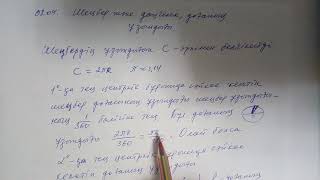 02.04. Шеңбер және доғаның
ұзындығы
Шеңбердің ұзындығы C - әрпімен белгіленеді
C = 2πR π ≈ 3,14
1°-қа тең центрлік бұрышқа сәйкес келетін
шеңбер доғасының ұзындығы шеңбер ұзындығы-
ның 1/360 бөлігіне тең. Бұл доғаның
ұзындығы 2πR/360 = . Олай болса
-қа тең центрлік бұрышқа сәйкес
келетін доғаның ұзындығы